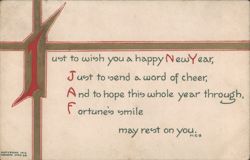 Just to wish you a happy New Year,
Just to send a word of cheer,
And to hope this whole year through,
Fortune's smile
may rest on you.